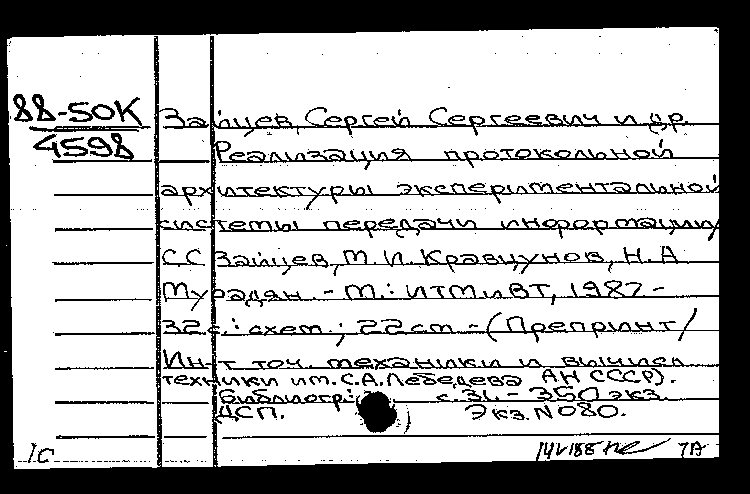 88-50К
4598
Зайцев, Сергей Сергеевич и др.
Реализация протокольной
архитектуры экспериментальной
системы передачи информации/
С С Зайцев, М. И. Кравцунов, Н. А
Мурадян. - М.: ИТМиВТ, 1987 -
32 с.: схем.; 22 см - (Препринт/
Ин-т точ. механики и вычисл
техники им. С.А. Лебедева АН СССР).
Библиогр.: с. 31. - 350 экз.
ДСП. Экз. N 080.
1с 7А